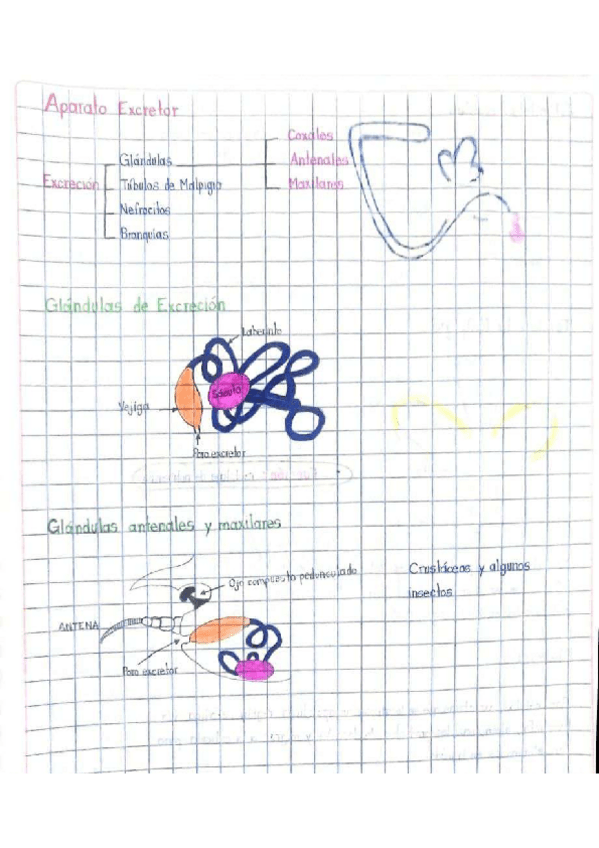 Aparato Excretor
Excreción
Glándulas
Túbulos de Malpigio
Nefrocitos
Branquias
Coxales
Antenales
Maxilares
Glándulas de Excreción
Laberinto
Sáculo
Vejiga
Poro excretor
Glándulas antenales y maxilares
Ojo compuesto pedunculado
ANTENA
Poro excretor
Crustáceos y algunos
insectos